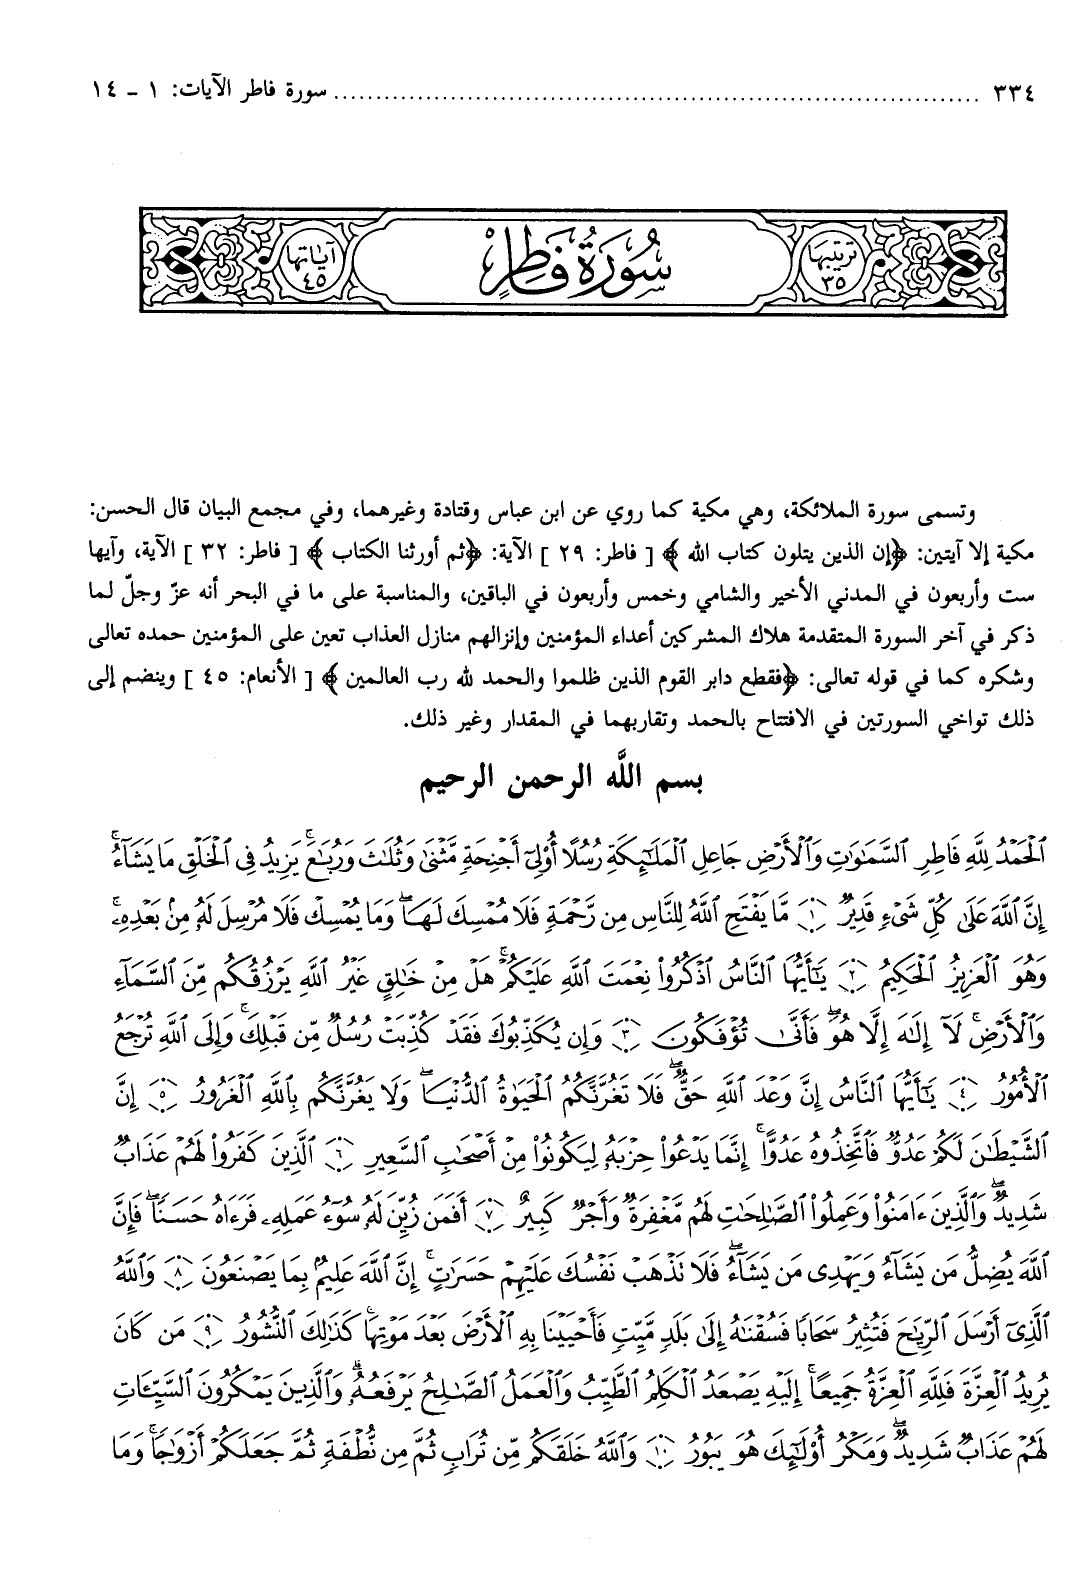 ٣٣٤ ........................................ سورة فاطر الآيات: ١ - ١٤
ترتيبها ٣٥ سُورَةُ فَاطِرٍ آياتها ٤٥
وتسمى سورة الملائكة، وهي مكية كما روي عن ابن عباس وقتادة وغيرهما، وفي مجمع البيان قال الحسن:
مكية إلا آيتين: ﴿إن الذين يتلون كتاب الله﴾ [ فاطر: ٢٩ ] الآية: ﴿ثم أورثنا الكتاب﴾ [ فاطر: ٣٢ ] الآية، وآيها
ست وأربعون في المدني الأخير والشامي وخمس وأربعون في الباقين، والمناسبة على ما في البحر أنه عزّ وجلّ لما
ذكر في آخر السورة المتقدمة هلاك المشركين أعداء المؤمنين وإنزالهم منازل العذاب تعين على المؤمنين حمده تعالى
وشكره كما في قوله تعالى: ﴿فقطع دابر القوم الذين ظلموا والحمد لله رب العالمين﴾ [ الأنعام: ٤٥ ] وينضم إلى
ذلك تواخي السورتين في الافتتاح بالحمد وتقاربهما في المقدار وغير ذلك.
بسم اللَّه الرحمن الرحيم
ٱلْحَمْدُ لِلَّهِ فَاطِرِ ٱلسَّمَٰوَٰتِ وَٱلْأَرْضِ جَاعِلِ ٱلْمَلَٰٓئِكَةِ رُسُلًا أُوْلِىٓ أَجْنِحَةٍ مَّثْنَىٰ وَثُلَٰثَ وَرُبَٰعَ ۚ يَزِيدُ فِى ٱلْخَلْقِ مَا يَشَآءُ ۚ
إِنَّ ٱللَّهَ عَلَىٰ كُلِّ شَىْءٍ قَدِيرٌ ١ مَّا يَفْتَحِ ٱللَّهُ لِلنَّاسِ مِن رَّحْمَةٍ فَلَا مُمْسِكَ لَهَا ۖ وَمَا يُمْسِكْ فَلَا مُرْسِلَ لَهُۥ مِنۢ بَعْدِهِۦ ۚ
وَهُوَ ٱلْعَزِيزُ ٱلْحَكِيمُ ٢ يَٰٓأَيُّهَا ٱلنَّاسُ ٱذْكُرُوا۟ نِعْمَتَ ٱللَّهِ عَلَيْكُمْ ۚ هَلْ مِنْ خَٰلِقٍ غَيْرُ ٱللَّهِ يَرْزُقُكُم مِّنَ ٱلسَّمَآءِ
وَٱلْأَرْضِ ۚ لَآ إِلَٰهَ إِلَّا هُوَ ۖ فَأَنَّىٰ تُؤْفَكُونَ ٣ وَإِن يُكَذِّبُوكَ فَقَدْ كُذِّبَتْ رُسُلٌ مِّن قَبْلِكَ ۚ وَإِلَى ٱللَّهِ تُرْجَعُ
ٱلْأُمُورُ ٤ يَٰٓأَيُّهَا ٱلنَّاسُ إِنَّ وَعْدَ ٱللَّهِ حَقٌّ ۖ فَلَا تَغُرَّنَّكُمُ ٱلْحَيَوٰةُ ٱلدُّنْيَا ۖ وَلَا يَغُرَّنَّكُم بِٱللَّهِ ٱلْغَرُورُ ٥ إِنَّ
ٱلشَّيْطَٰنَ لَكُمْ عَدُوٌّ فَٱتَّخِذُوهُ عَدُوًّا ۚ إِنَّمَا يَدْعُوا۟ حِزْبَهُۥ لِيَكُونُوا۟ مِنْ أَصْحَٰبِ ٱلسَّعِيرِ ٦ ٱلَّذِينَ كَفَرُوا۟ لَهُمْ عَذَابٌ
شَدِيدٌ ۖ وَٱلَّذِينَ ءَامَنُوا۟ وَعَمِلُوا۟ ٱلصَّٰلِحَٰتِ لَهُم مَّغْفِرَةٌ وَأَجْرٌ كَبِيرٌ ٧ أَفَمَن زُيِّنَ لَهُۥ سُوٓءُ عَمَلِهِۦ فَرَءَاهُ حَسَنًا ۖ فَإِنَّ
ٱللَّهَ يُضِلُّ مَن يَشَآءُ وَيَهْدِى مَن يَشَآءُ ۖ فَلَا تَذْهَبْ نَفْسُكَ عَلَيْهِمْ حَسَرَٰتٍ ۚ إِنَّ ٱللَّهَ عَلِيمٌۢ بِمَا يَصْنَعُونَ ٨ وَٱللَّهُ
ٱلَّذِىٓ أَرْسَلَ ٱلرِّيَٰحَ فَتُثِيرُ سَحَابًا فَسُقْنَٰهُ إِلَىٰ بَلَدٍ مَّيِّتٍ فَأَحْيَيْنَا بِهِ ٱلْأَرْضَ بَعْدَ مَوْتِهَا ۚ كَذَٰلِكَ ٱلنُّشُورُ ٩ مَن كَانَ
يُرِيدُ ٱلْعِزَّةَ فَلِلَّهِ ٱلْعِزَّةُ جَمِيعًا ۚ إِلَيْهِ يَصْعَدُ ٱلْكَلِمُ ٱلطَّيِّبُ وَٱلْعَمَلُ ٱلصَّٰلِحُ يَرْفَعُهُۥ ۚ وَٱلَّذِينَ يَمْكُرُونَ ٱلسَّيِّـَٔاتِ
لَهُمْ عَذَابٌ شَدِيدٌ ۖ وَمَكْرُ أُوْلَٰٓئِكَ هُوَ يَبُورُ ١٠ وَٱللَّهُ خَلَقَكُم مِّن تُرَابٍ ثُمَّ مِن نُّطْفَةٍ ثُمَّ جَعَلَكُمْ أَزْوَٰجًا ۚ وَمَا